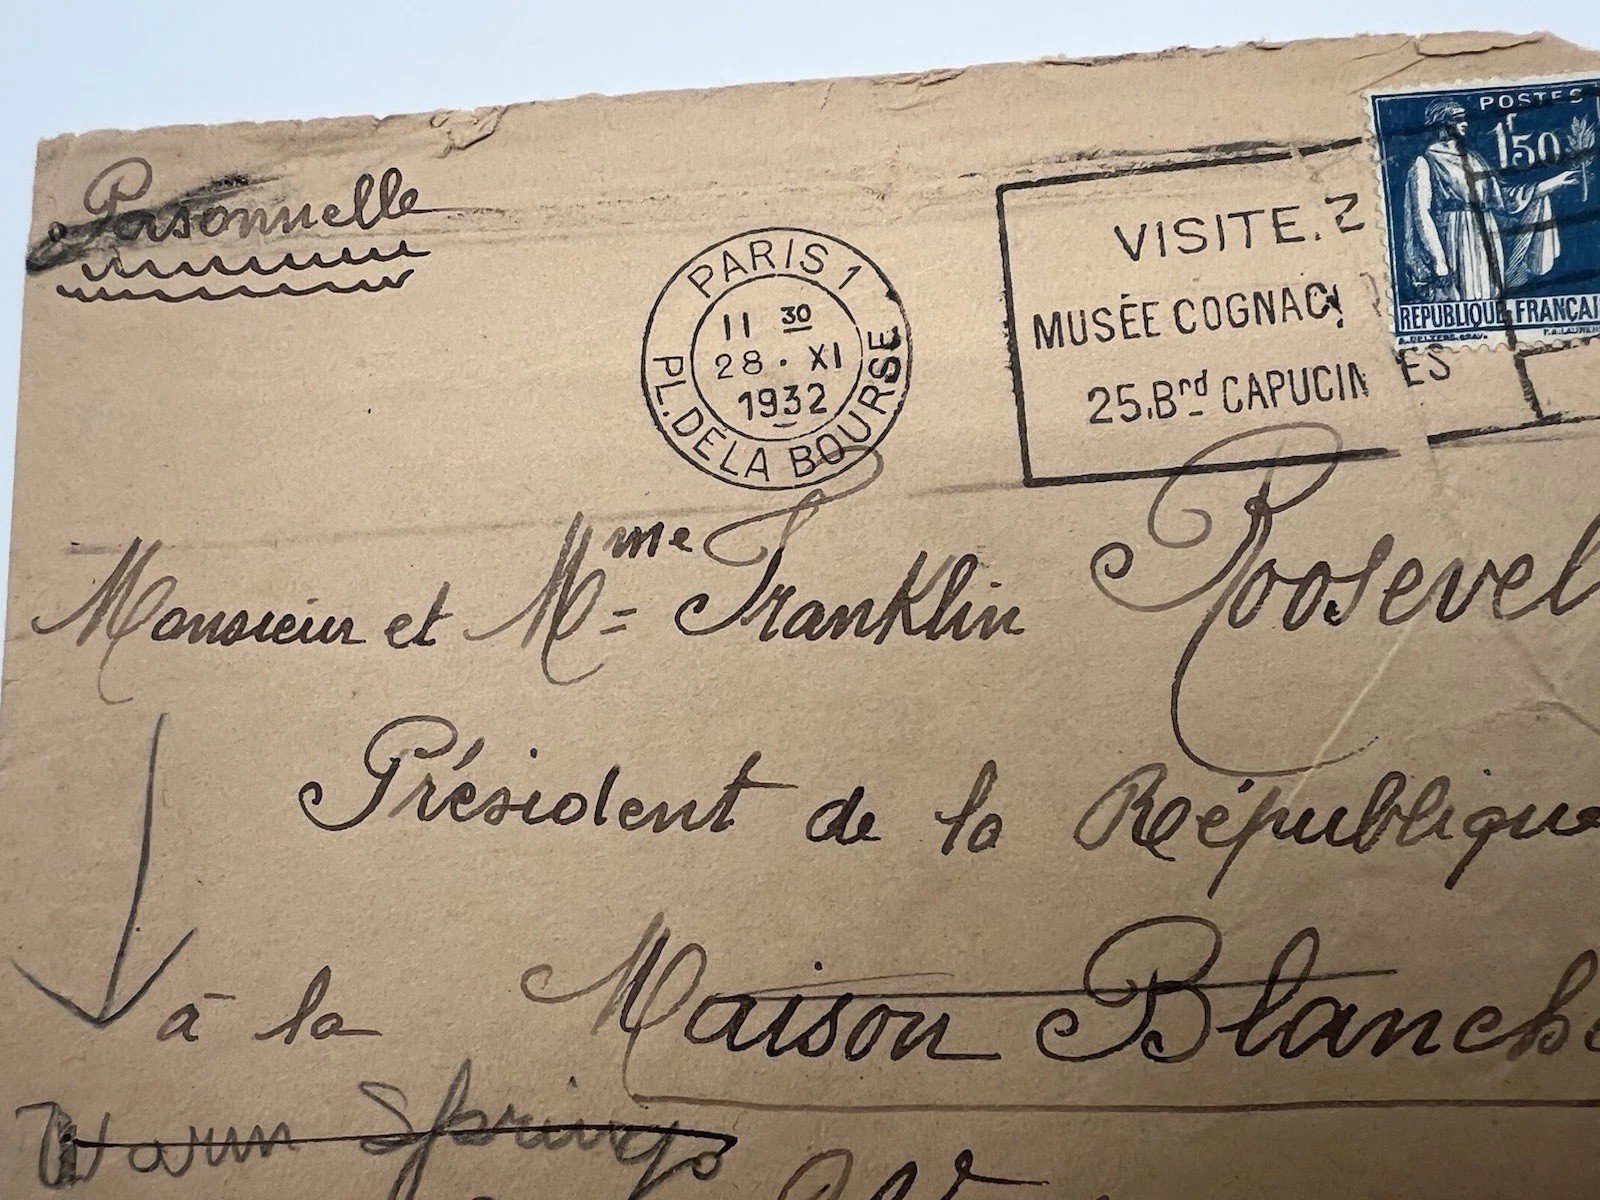 Personnelle
PARIS 1
11 30
28 · XI
1932
PL. DE LA BOURSE
VISITEZ
MUSÉE COGNACQ
25.Brd CAPUCINES
POSTES
1f50
REPUBLIQUE FRANÇAI
Monsieur et Mme Franklin Roosevel
Président de la République
à la Maison Blanche
Warm Springs